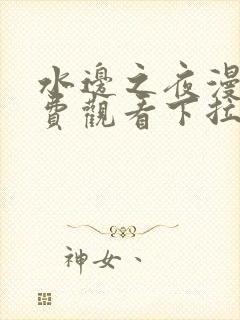 水邊之夜漫
費觀看下拉
神女、